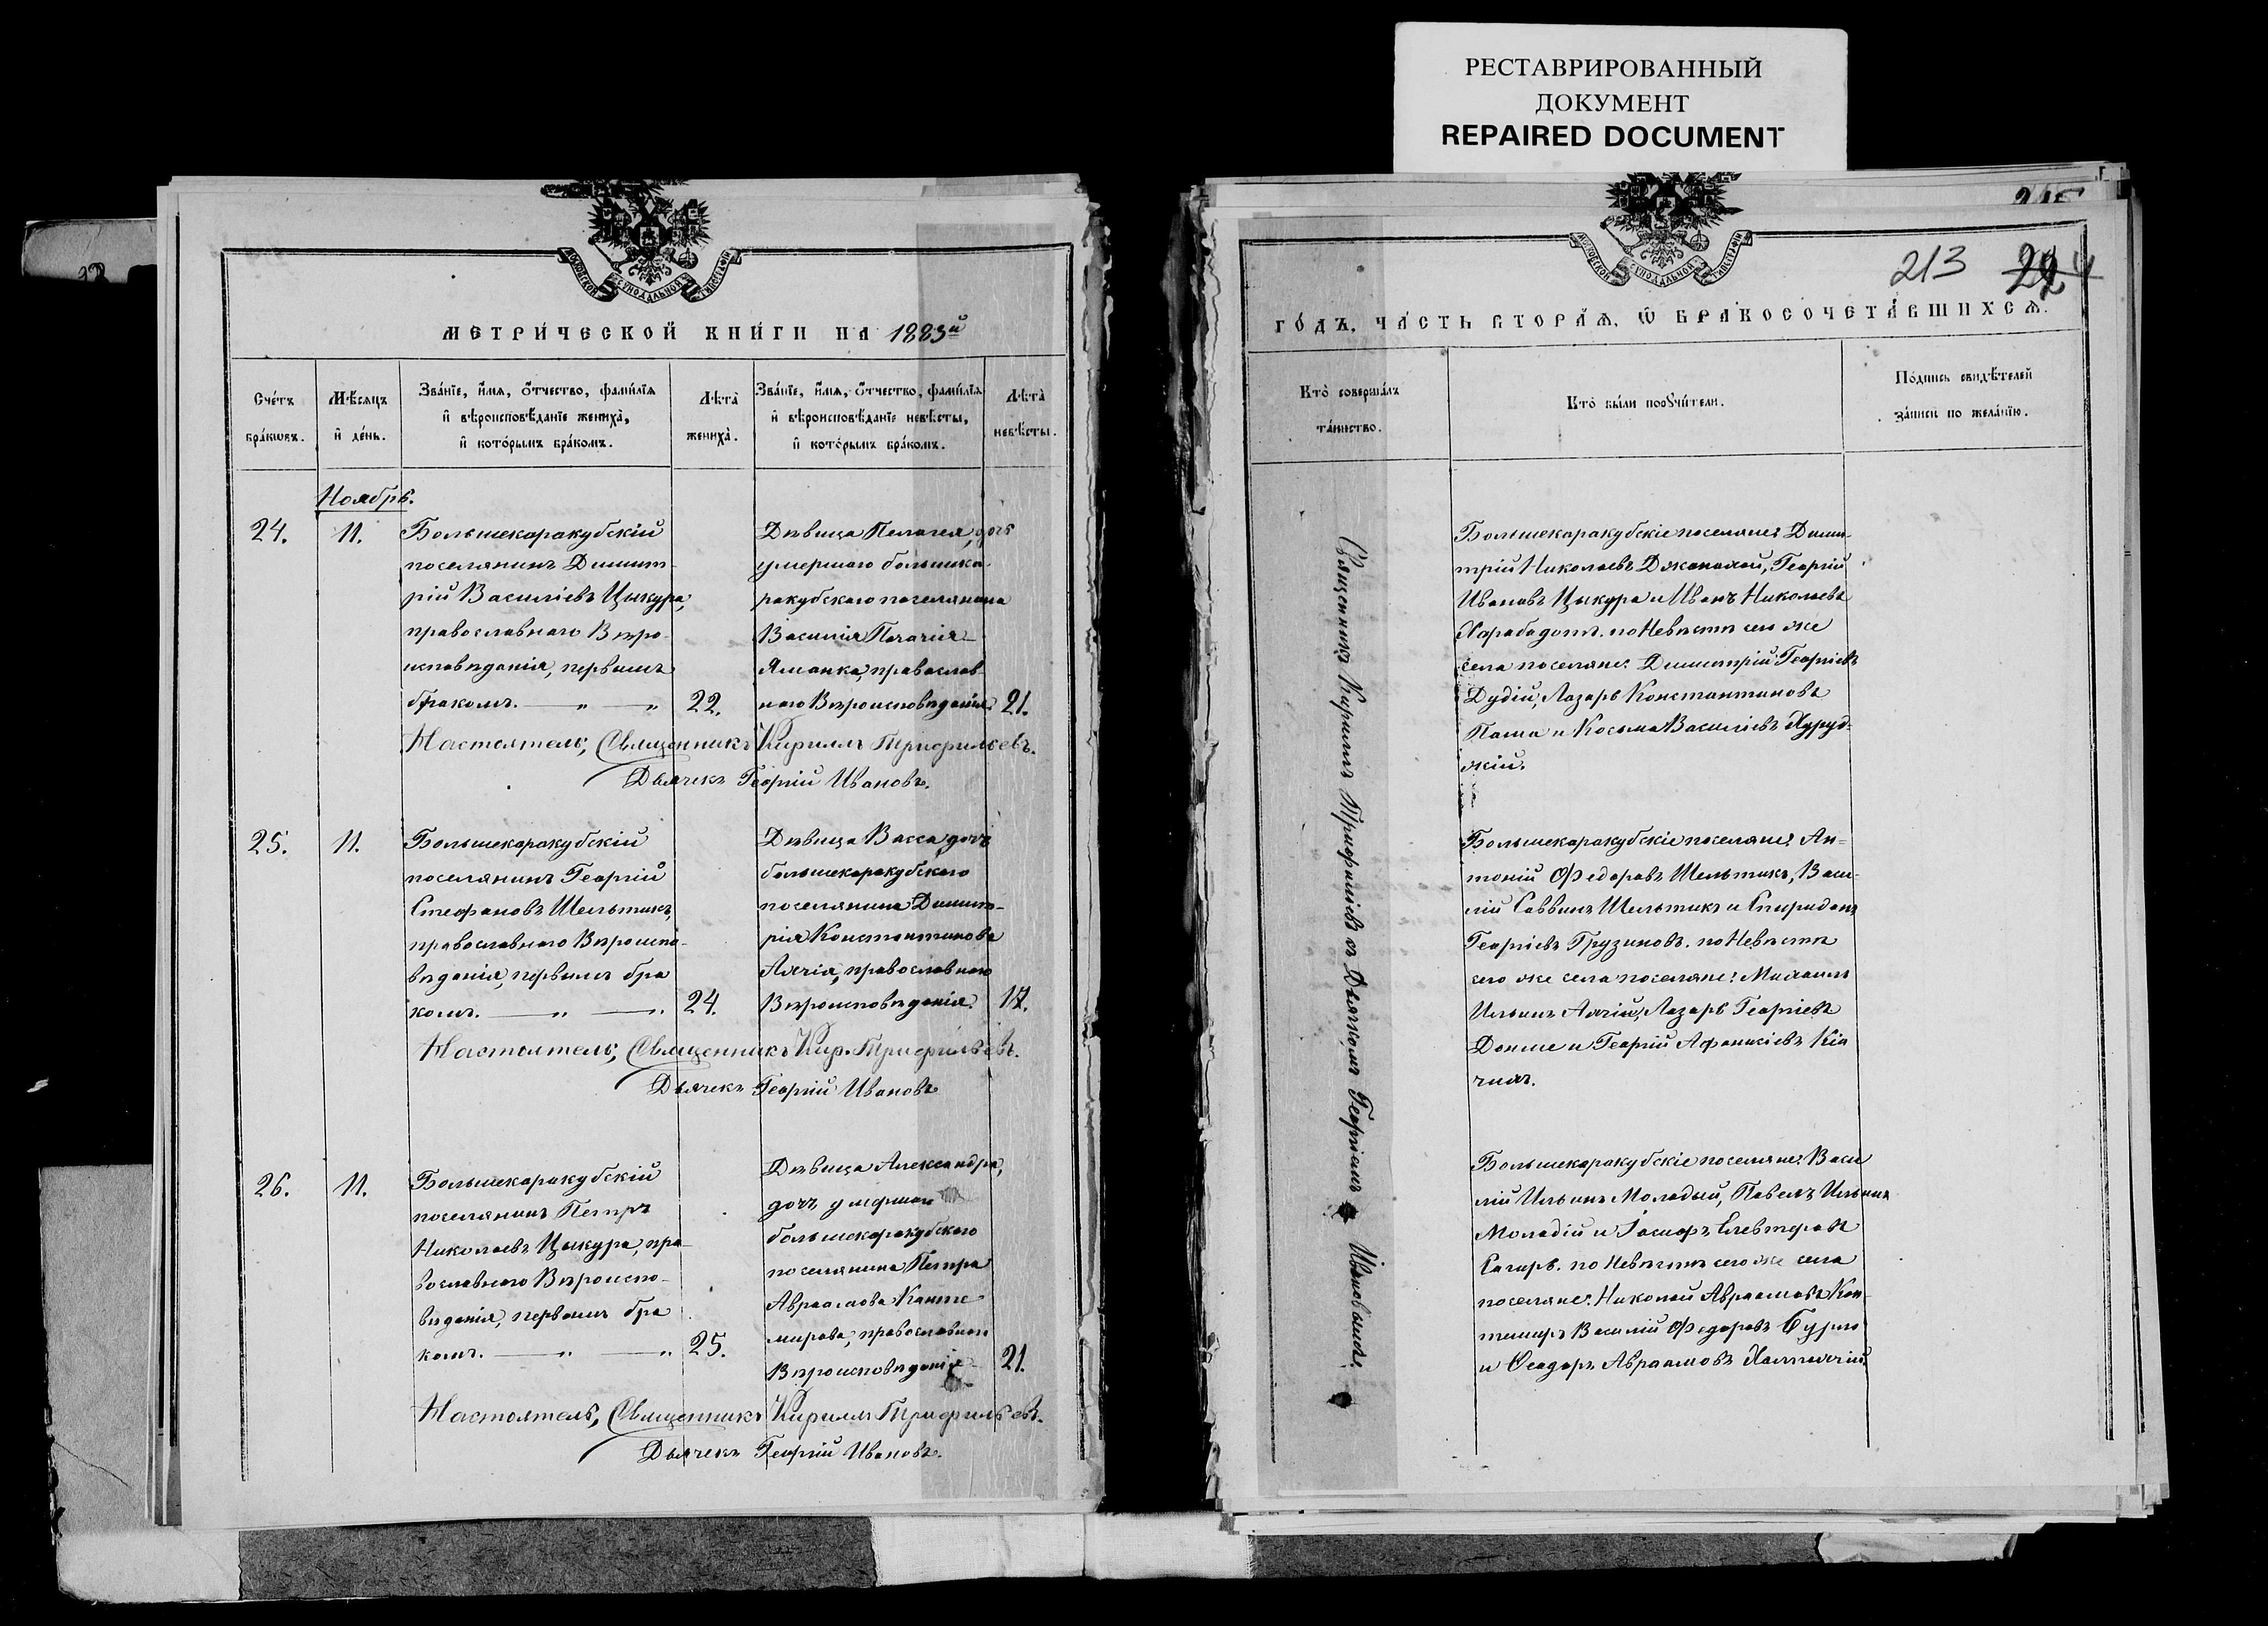 РЕСТАВРИРОВАННЫЙ
ДОКУМЕНТ
REPAIRED DOCUMENT
МОСКОВСКОЙ СѴНОДАЛЬНОЙ ТИПОГРАФІИ
МЕТРИ́ЧЕСКОЙ КНИ́ГИ НА 1883й
Сче́тъ бра́кѡвъ.
Мѣ́сяцъ и҆ де́нь.
Зва́нїе, и҆́мя, о҆́тчество, фами́лїя
и҆ вѣроисповѣ́данїе жениха̀,
и҆ кото́рымъ бра́комъ.
Лѣта̀ жениха̀.
Зва́нїе, и҆́мя, о҆́тчество, фами́лїя
и҆ вѣроисповѣ́данїе невѣ́сты,
и҆ кото́рымъ бра́комъ.
Лѣта̀ невѣ́сты.
Ноябрь.
24. 11.
Большекаракубскій
поселянинъ Димит-
рій Василіевъ Цыкура,
православнаго Вѣро-
исповѣданія, первымъ
бракомъ. — „ — „ 22.
Дѣвица Пелагея, дочь
умершаго большека-
ракубскаго поселянина
Василія
Яманка, православ-
наго Вѣроисповѣданія. 21.
Настоятель, Священникъ Кириллъ Трифильевъ.
Дьячекъ Георгій Ивановъ.
25. 11.
Большекаракубскій
поселянинъ Георгій
Стефановъ Шельтикъ,
православнаго Вѣроиспо-
вѣданія, первымъ бра
комъ. — „ — „ 24.
Дѣвица Васса дочь
большекаракубскаго
поселянина Димит-
рія Константинова
православнаго
Вѣроисповѣданія. 17.
Настоятель, Священникъ Кир. Трифильевъ.
Дьячекъ Георгій Ивановъ
26. 11.
Большекаракубскій
поселянинъ Петръ
Николаевъ Цыкура, пра-
вославнаго Вѣроиспо-
вѣданія, первымъ бра
комъ. — „ — „ 25.
Дѣвица Александра,
дочь умершаго
большекаракубскаго
поселянина Петра
Авраамова Канте-
мирова, православнаго
Вѣроисповѣданія 21.
Настоятель, Священникъ Кириллъ Трифильевъ.
Дьячекъ Георгій Ивановъ.
213
МОСКОВСКОЙ СѴНОДАЛЬНОЙ ТИПОГРАФІИ
ГО́ДЪ, ЧА́СТЬ ВТОРА́Ѧ, Ѡ҆ БРАКОСОЧЕТА́ВШИХСѦ.
Кто̀ соверша́лъ
та́инство.
Кто̀ бы́ли поꙋчи́тели.
По́дпись свидѣ́телей
за́писи по жела́нїю.
Священникъ Кириллъ Трифиліевъ съ Дьячкомъ Георгіемъ Ивановымъ.
Большекаракубскіе поселяне: Дими-
трій Николаевъ Георгій
Ивановъ Цыкура и Иванъ Николаевъ
по Невѣстѣ сего же
села поселяне: Димитрій Георгіевъ
Дудій, Лазарь Константиновъ
Паша и Косьма Василіевъ Хуруд-
жій.
Большекаракубскіе поселяне: Ан-
тоній Федоровъ Шельтикъ, Васи-
лій Саввинъ Шельтикъ и Спиридонъ
Георгіевъ Грузиновъ. по Невѣстѣ
сего же села поселяне: Михаилъ
Ильинъ Лазарь Георгіевъ
и Георгій Афанасіевъ
Большекаракубскіе поселяне: Васи
лій Ильинъ Молодый, Павелъ Ильинъ
Молодій и Іосифъ Елевтеровъ
по Невѣстѣ сего же села
поселяне: Николай Авраамовъ Кан-
темиръ Василій Федоровъ
и Феодоръ Авраамовъ